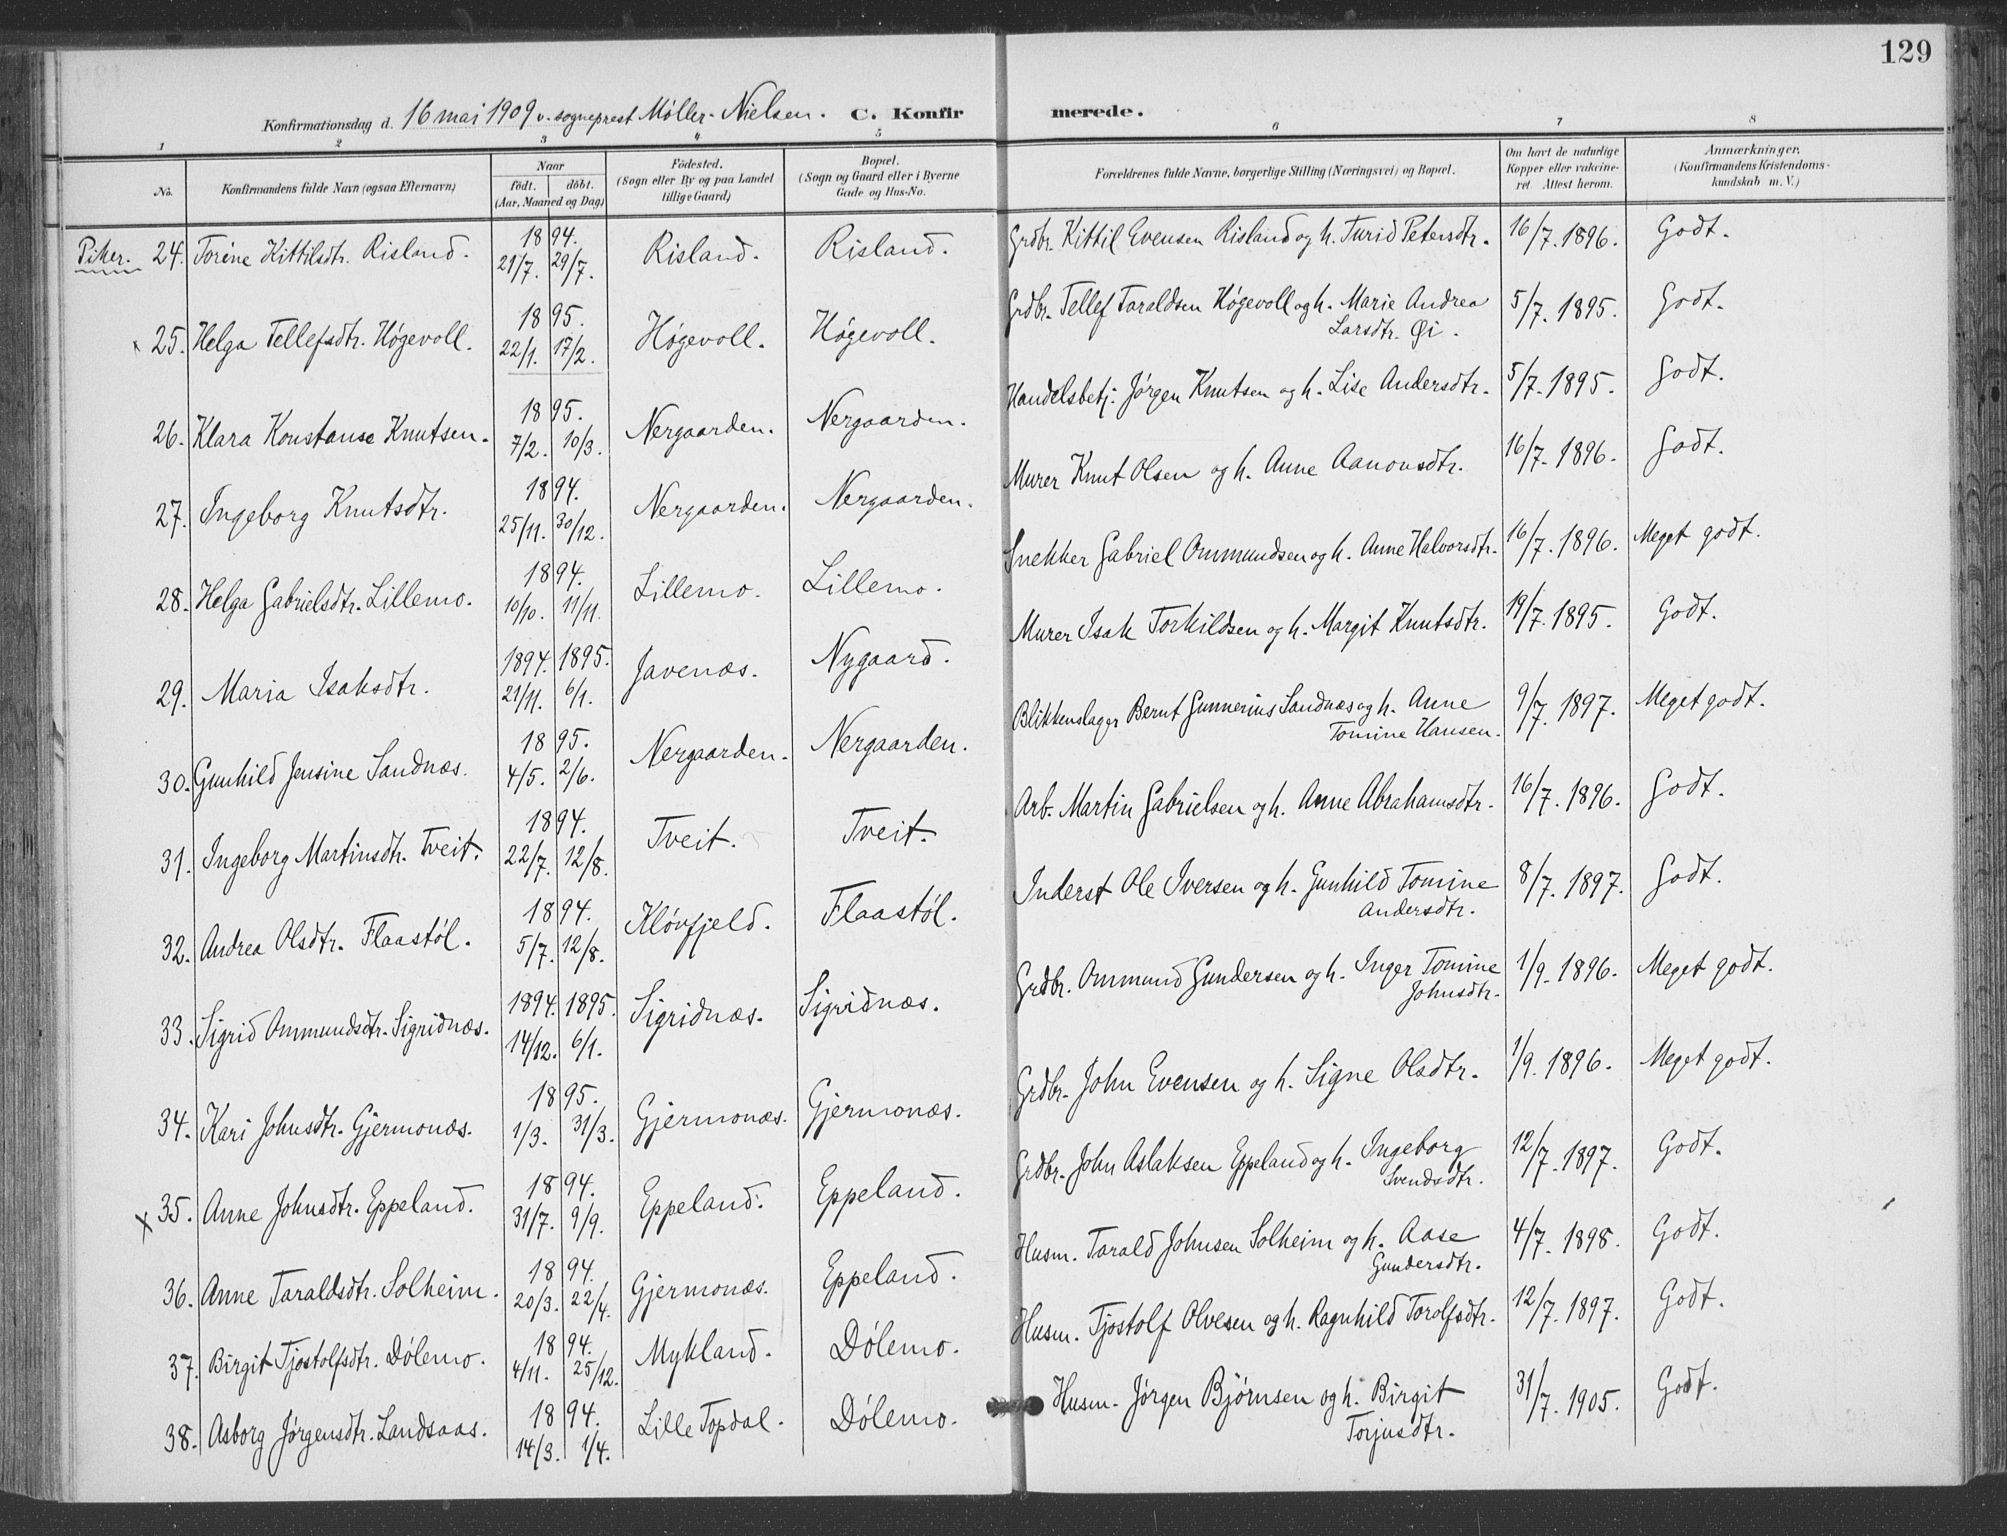 129
Konfirmationsdag d. 16 mai 1909 v. sogneprest Møller-Nielsen. C. Konfirmerede.
1 2 3 4 5 6 7 8
No. Konfirmandens fulde Navn (ogsaa Efternavn) Naar født. døbt. (Aar, Maaned og Dag) Fødested. (Sogn eller By og paa Landet tillige Gaard) Bopæl. (Sogn og Gaard eller i Byerne Gade og Hus-No. Forældrenes fulde Navne, borgerlige Stilling (Næringsvei) og Bopæl. Om havt de naturlige Kopper eller vakcineret. Attest herom. Anmærkninger. (Konfirmandens Kristendomskundskab m. V.)
Piker. 24. Torine Kittilsdtr. Risland. 1894. 21/7. 29/7. Risland. Risland. Grdbr. Kittil Evensen Risland og h. Turid Petersdtr. 16/7. 1896. Godt.
25. Helga Tellefsdtr. Høgevoll. 1895. 22/1. 17/2. Høgevoll. Høgevoll. Grdbr. Tellef Taraldsen Høgevoll og h. Marie Andrea Larsdtr. Øi. 5/7. 1895. Godt.
26. Klara Konstanse Knutsen. 1895. 7/2. 10/3. Nergaarden. Nergaarden. Handelsbetj. Jørgen Knutsen og h. Lise Andersdtr. 5/7. 1895. Godt.
27. Ingeborg Knutsdtr. 1894. 25/11. 30/12. Nergaarden. Nergaarden. Murer Knut Olsen og h. Anne Aanonsdtr. 16/7. 1896. Godt.
28. Helga Gabrielsdtr. Lillemo. 1894. 10/10. 11/11. Lillemo. Lillemo. Snekker Gabriel Ommundsen og h. Anne Halvorsdtr. 16/7. 1896. Meget godt.
29. Maria Isaksdtr. 1894. 1895. 21/11. 6/1. Javenæs. Nygaard. Murer Isak Torkildsen og h. Margit Knutsdtr. 19/7. 1895. Godt.
30. Gunhild Jensine Sandnæs. 1895. 4/5. 2/6. Nergaarden. Nergaarden. Blikkenslager Bernt Gunnerius Sandnæs og h. Anne Tomine Hansen. 9/7. 1897. Meget godt.
31. Ingeborg Martinsdtr. Tveit. 1894. 22/7. 12/8. Tveit. Tveit. Arb. Martin Gabrielsen og h. Anne Abrahamsdtr. 16/7. 1896. Godt.
32. Andrea Olsdtr. Flaastøl. 1894. 5/7. 12/8. Kløvfjeld. Flaastøl. Inderst Ole Iversen og h. Gunhild Tomine Andersdtr. 8/7. 1897. Godt.
33. Sigrid Ommundsdtr. Sigridnæs. 1894. 1895. 14/12. 6/1. Sigridnæs. Sigridnæs. Grdbr. Ommund Gundersen og h. Inger Tomine Johnsdtr. 1/9. 1896. Meget godt.
34. Kari Johnsdtr. Gjermonæs. 1895. 1/3. 31/3. Gjermonæs. Gjermonæs. Grdbr. John Evensen og h. Signe Olsdtr. 1/9. 1896. Meget godt.
x 35. Anne Johnsdtr. Eppeland. 1894. 31/7. 9/9. Eppeland. Eppeland. Grdbr. John Aslaksen Eppeland og h. Ingeborg Svendsdtr. 12/7. 1897. Godt.
36. Anne Taraldsdtr. Solheim. 1894. 20/3. 22/4. Gjermonæs. Eppeland. Husm. Tarald Johnsen Solheim og h. Aase Gundersdtr. 4/7. 1898. Godt.
37. Birgit Tjostolfsdtr. Dølemo. 1894. 4/11. 25/12. Mykland. Dølemo. Husm. Tjostolf Olvesen og h. Ragnhild Torolfsdtr. 12/7. 1897. Godt.
38. Asborg Jørgensdtr. Landsaas. 1894. 14/3. 1/4. Lille Topdal. Dølemo. Husm. Jørgen Bjørnsen og h. Birgit Torjusdtr. 31/7. 1905. Godt.